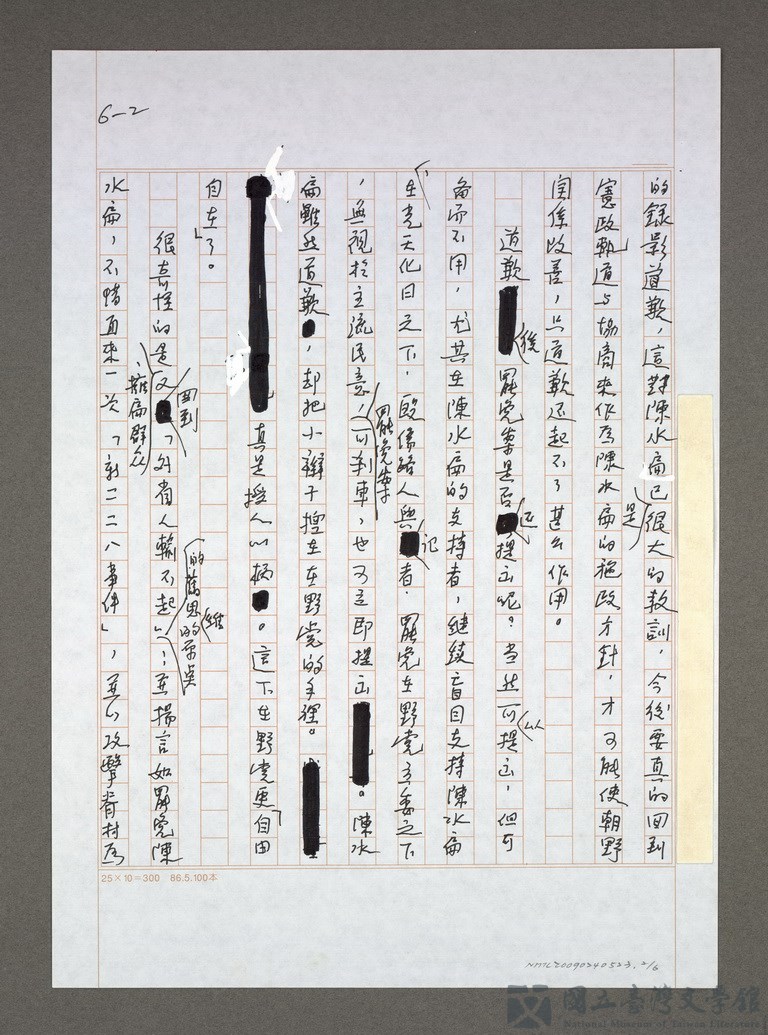 6-2
的錄影道歉，這對陳水扁是已很大的教訓，今後要真的回到
憲政軌道与協商來作為陳水扁的施政方針，才可能使朝野
関係改善，只道歉还起不了甚么作用。
道歉後罷免案是否还提出呢？当然可以提出，但可
备而不用，尤其在陳水扁的支持者，继续盲目支持陳水扁
在光天化日之下，毆傷路人與记者，罷免在野党立委之下
，無視於主流民意，罷免案可刹車，也可立即提出。陳水
扁雖然道歉，却把小辮子擅在在野党的手裡。
真是授人以柄。這下在野党更自由
自在了。
很奇怪的是又回到「外省人輸不起」的舊思维的挺扁群众，並揚言如罷免陳
水扁，不惜再來一次「新二二八事件」，並以攻擊眷村為
25×10=300 86.5.100本
NMTL20090240523. 2/6
國立臺灣文學館
National Museum of Taiwan Literature